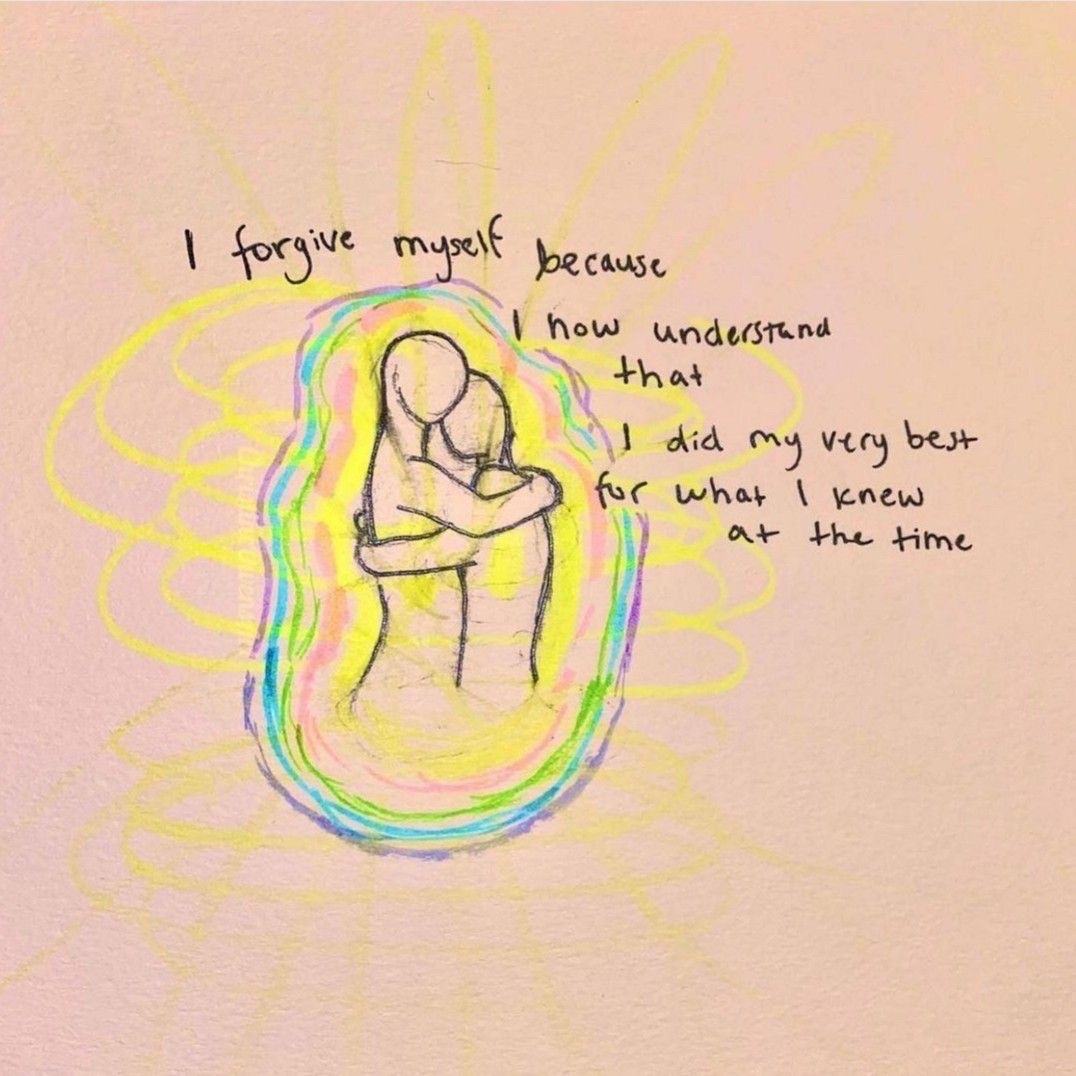 I forgive myself because
I now understand
that
I did my very best
for what I knew
at the time